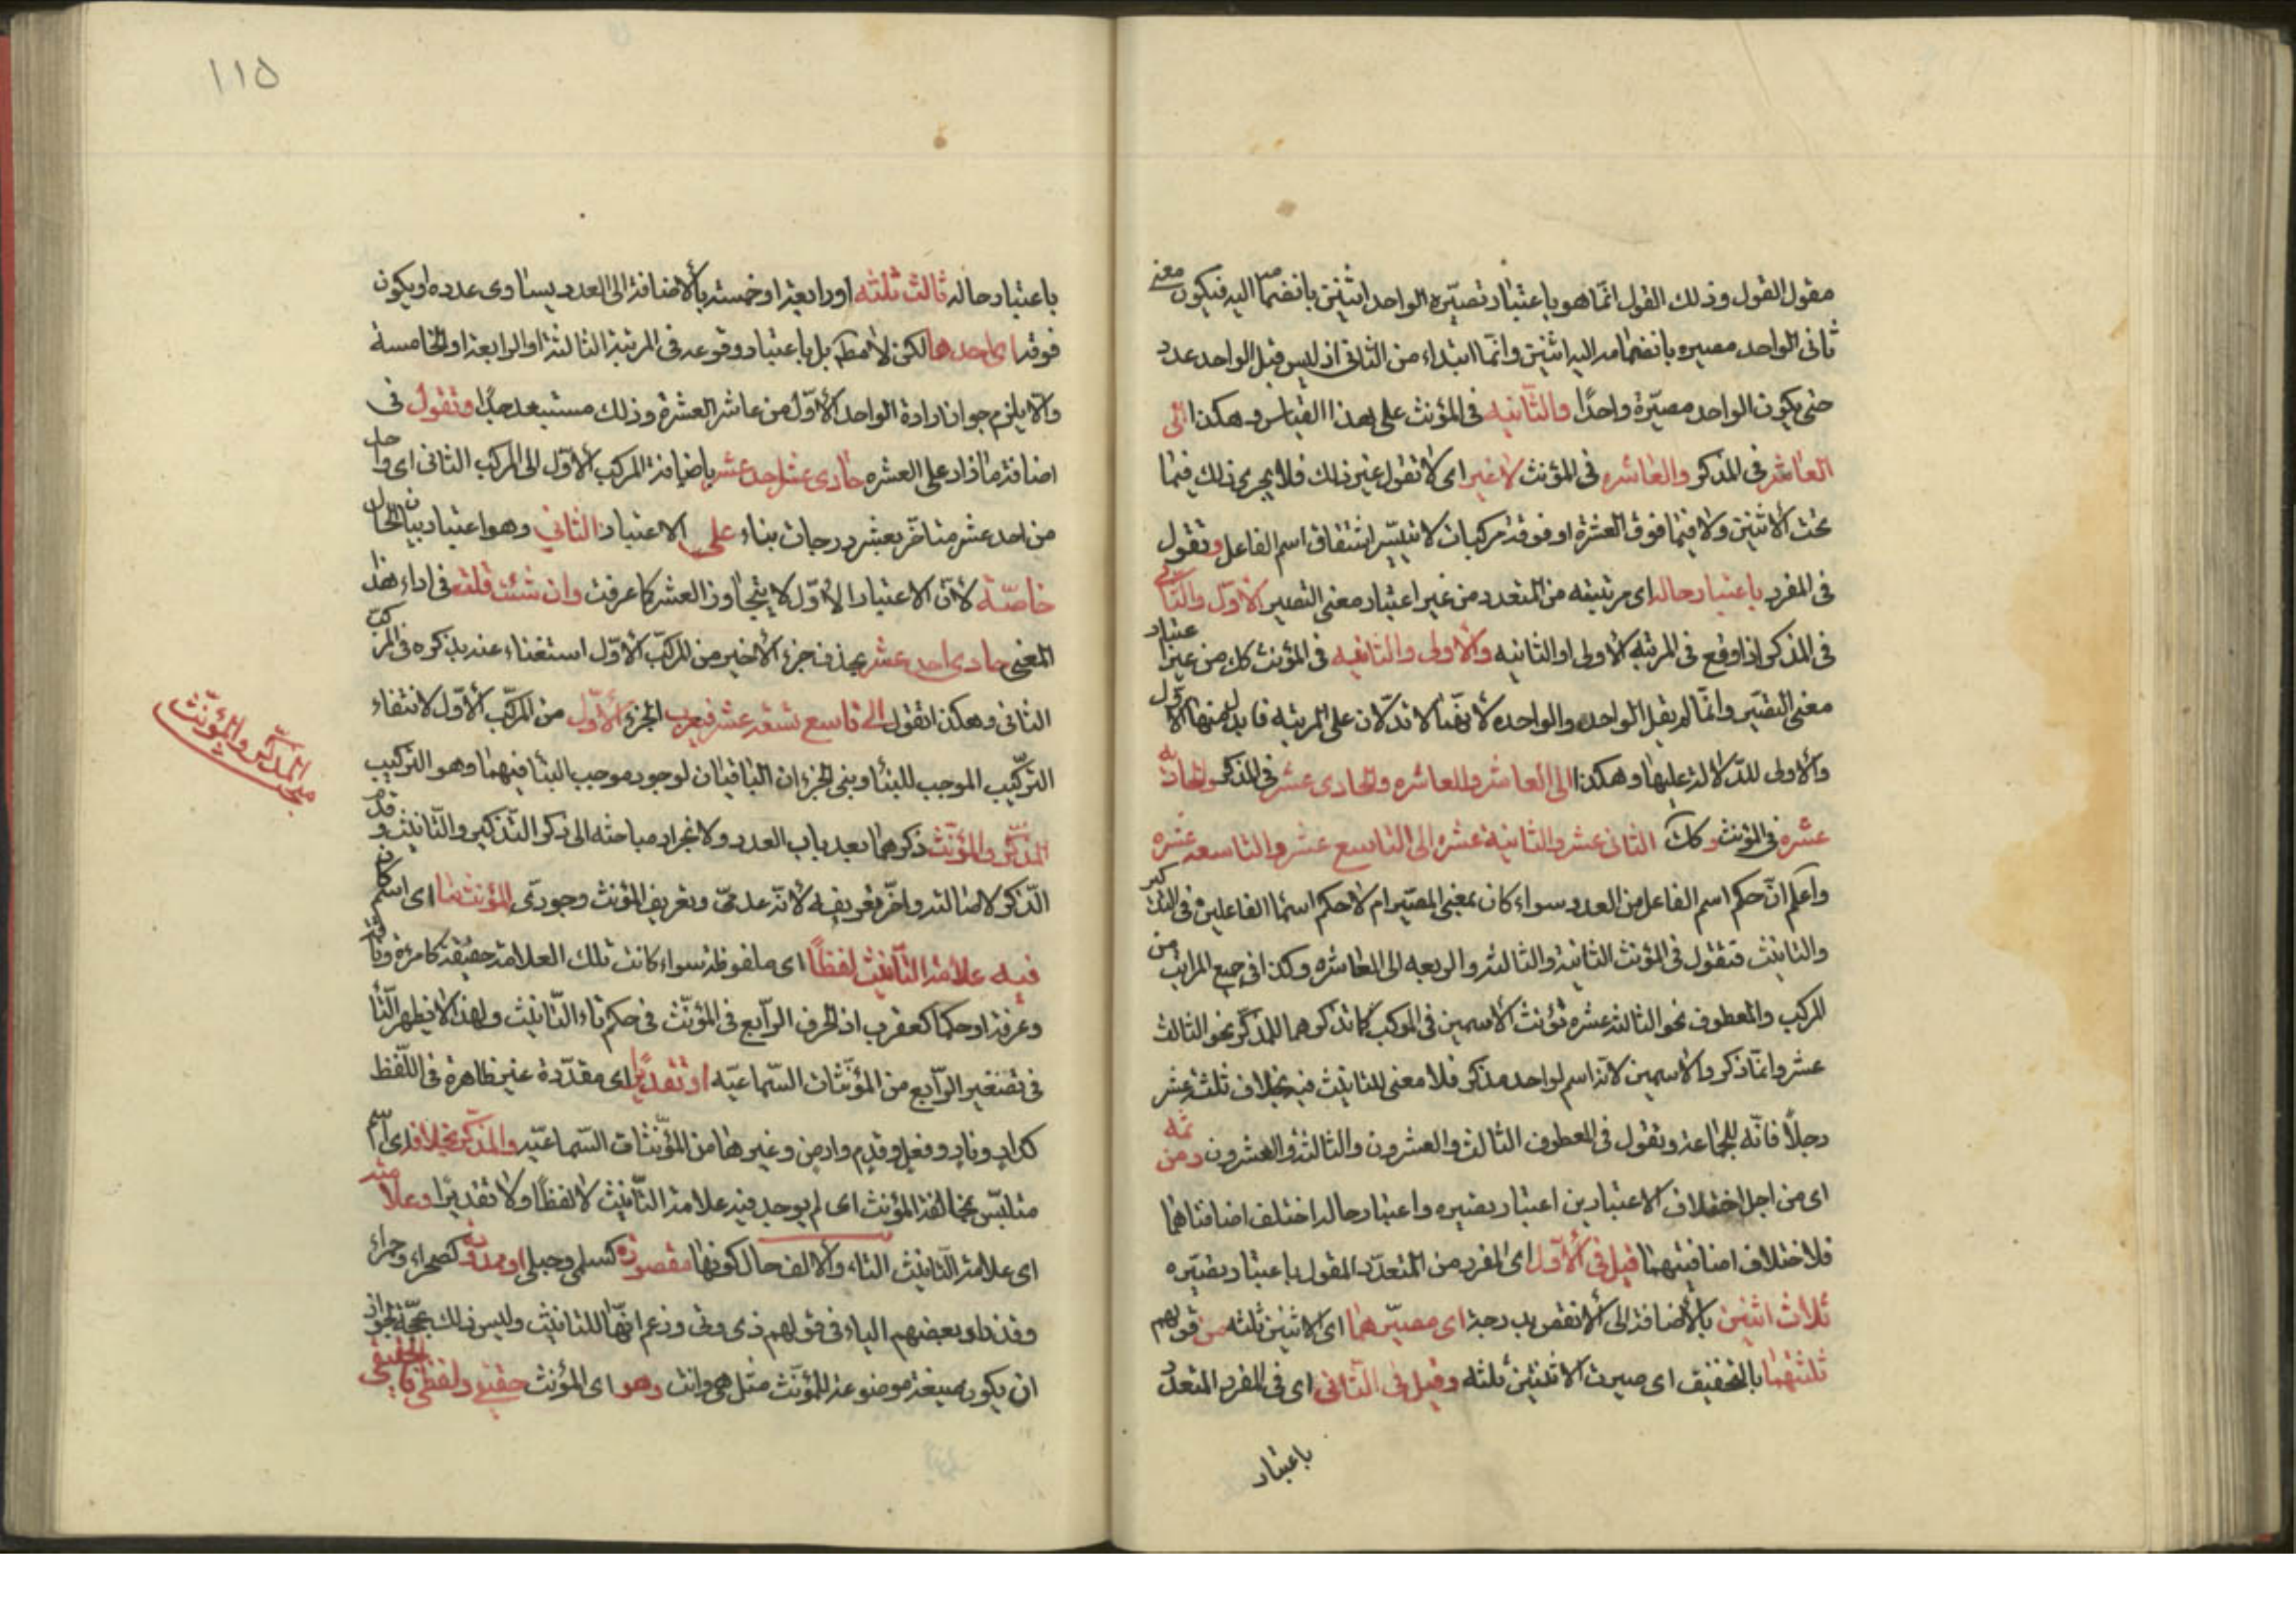 مقول القول وذلك القول انّما هو باعتبار تصيّره الواحد اثنين بانضمامه اليه فيكون معنى
ثانى الواحد مصيره بانضمامه اليه اثنين وانّما ابتداء من الثانى اذ ليس قبل الواحد عدد
حتى يكون الواحد مصيّرة واحدًا والثّانيه فى المؤنث على هذا القياس وهكذا الى
العاشر فى المذكر والعاشره فى المؤنث لا غير اى لا تقول غير ذلك فلا يجرى ذلك فيما
تحت الاثنين ولا فيما فوق العشرة او فوقه مركبات لا يتيسّر اشتقاق اسم الفاعل وتقول
فى المفرد باعتبار حاله اى مرتبته من المتعدد من غير اعتبار معنى التصيير الاوّل والثّانى
فى المذكر اذا وقع فى المرتبه الاولى او الثانيه والاولى والثانيه فى المؤنث كك من غير اعتبار
معنى التصيّر وانّما لم يقل الواحد والواحده لانّهما لا تدلّان على المرتبه فابدل منهما الاوّل
والاولى للدّلالة عليها وهكذا الى العاشر والعاشره والحادى عشر فى المذكر والحاديه
عشره فى المؤنث وكك الثانى عشر والثانية عشره الى التاسع عشر والتاسعه عشره
واعلم انّ حكم اسم الفاعل من العدد سواء كان بمعنى المصيّر ام لا حكم اسماء الفاعلين فى التذكير
والتانيث فتقول فى المؤنث الثانية والثالثة والرابعه الى العاشره وكذا فى جميع المراتب من
المركب والمعطوف نحو الثالثة عشره تؤنث الاسمين فى المركب كما تذكرهما للمذكر نحو الثالث
عشر وانّما ذكروا الاسمين لانّه اسم لواحد مذكر فلا معنى للتانيث فيه بخلاف ثلثة عشر
رجلًا فانّه للجماعة وتقول فى المعطوف الثالث والعشرون والثالثة والعشرون ومن ثمّه
اى من اجل اختلاف الاعتبارين اعتبار تصيره واعتبار حاله اختلف اضافتاهما
فلاختلاف اضافتيهما قيل فى الاوّل اى المفرد من المتعدّد المقول باعتبار تصيّره
ثالث اثنين بالاضافة الى الانقص بدرجة اى مصيّرهما اى الاثنين ثلثه من قولهم
ثلثتهما بالتخفيف اى صيرت الاثنين ثلثه وقيل فى الثّانى اى فى المفرد المتعدّد
باعتبار
١١٥
باعتبار حاله ثالث ثلثه او رابعة او خمسه بالاضافة الى العدد يساوى عدده او يكون
فوقه اى احدها لكن لا مطم بل باعتبار وقوعه فى المرتبة الثالثة او الرابعة او الخامسة
والّا يلزم جواز ارادة الواحد الاوّل من عاشر العشرة وذلك مستبعد جدًا وتقول فى
اضافة ما زاد على العشره حادى عشر احد عشر باضافة المركب الاوّل الى المركب الثانى اى واحد
من احد عشر متأخّر بعشر درجات بناء على الاعتبار الثاني وهو اعتبار بيان الحال
خاصّة لانّ الاعتبار الاوّل لا يتجاوز العشر كما عرفت وان شئت قلت فى اداء هذا
المعنى حادى احد عشر بحذف جزء الاخير من المركّب الاوّل استغناء عنه بذكره فى المركب
الثانى وهكذا تقول الى تاسع تسعة عشر فيعرب الجزء الاوّل من المركّب الاوّل لانتفاء
التركّيب الموجب للبناء وبنى الجزءان الباقيان لوجود موجب البناء فيهما وهو التركيب
المذكّر والمؤنّث ذكرهما بعد باب العدد ولانجرار مباحثه الى ذكر التذكير والتّانيث وقدم
الذّكر لاصالته واخّر تعريفه لانّه عدمىّ وتعريف المؤنث وجودىّ المؤنث ما اى اسم كان
فيه علامة التّانيث لفظاً اى ملفوظة سواء كانت تلك العلامة حقيقة كامرءة وناقة
وغرفة او حكمًا كعقرب اذ الحرف الرّابع فى المؤنّث فى حكم تاء التّانيث ولهذا لا يظهر التّاء
فى تصغير الرّابع من المؤنّثات السّماعيّه او تقديرًا اى مقدّرة غير ظاهرة فى اللّفظ
كدار ونار ونعل وقدم وارض وغيرها من المؤنّثات السّماعيّه والمذكّر بخلافه اى اسم
متلبّس بمخالفة المؤنث اى لم يوجد فيه علامة التّانيث لا لفظًا ولا تقديرًا وعلامته
اى علامة التّانيث التاء والالف حال كونها مقصوره كسلمى وحبلى او ممدوده كصحراء وحمراء
وقد زاد بعضهم الياء فى قولهم ذى وتى وزعم انّها للتانيث وليس ذلك بحجّة لجواز
ان يكون صيغة موضوعة للمؤنّث مثل هى وانت وهو اى المؤنث حقيقى ولفظى فالحقيقى
مبحث المذكّر والمؤنّث